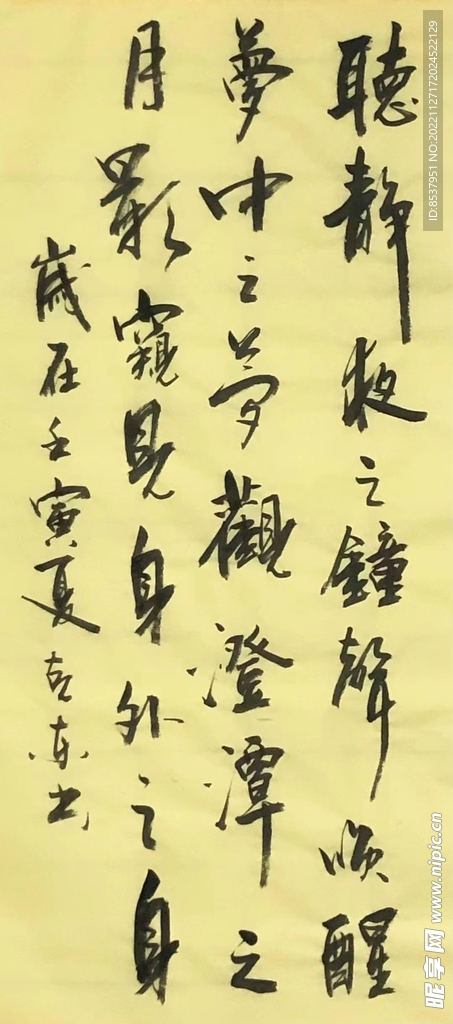 聽靜夜之鐘聲喚醒
夢中之夢觀澄潭之
月影窺見身外之身
歲在壬寅夏克東书
ID:8537951 NO:20221127172024522129
昵享网 www.nipic.cn